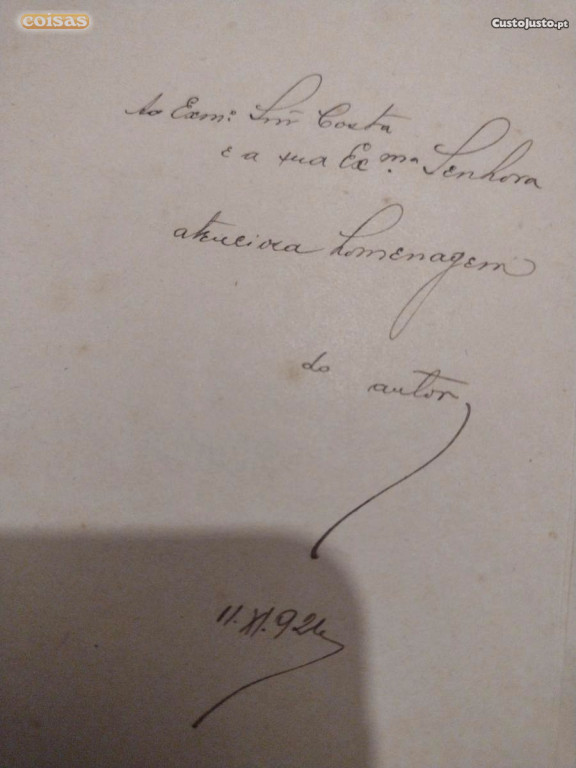 coisas
CustoJusto.pt
Ao Exmº Snr Costa
e a sua Exma Senhora
atenciosa homenagem
do autor
11.XI.924